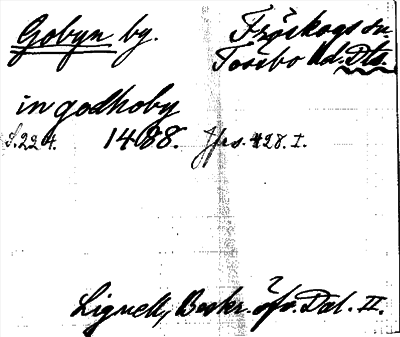 Gobyn by.
Fröskogs sn.
Tössbo hd. Dls.
in godhoby
S. 224. 1488. Jfr s. 428. I.
Lignell, Beskr. öfv. Dal. II.